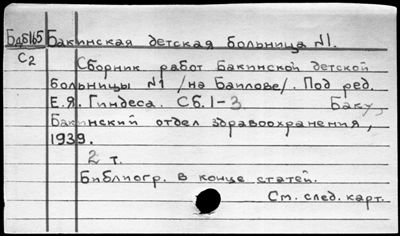 Бдб165 Бакинская детская больница №1.
С2 Сборник работ Бакинской детской
больницы №1 /на Баилове/. Под ред.
Е.Я. Гиндеса. Сб. 1-3 Баку,
Бакинский отдел здравоохранения,
1939.
2 т.
Библиогр. в конце статей.
См. след. карт.